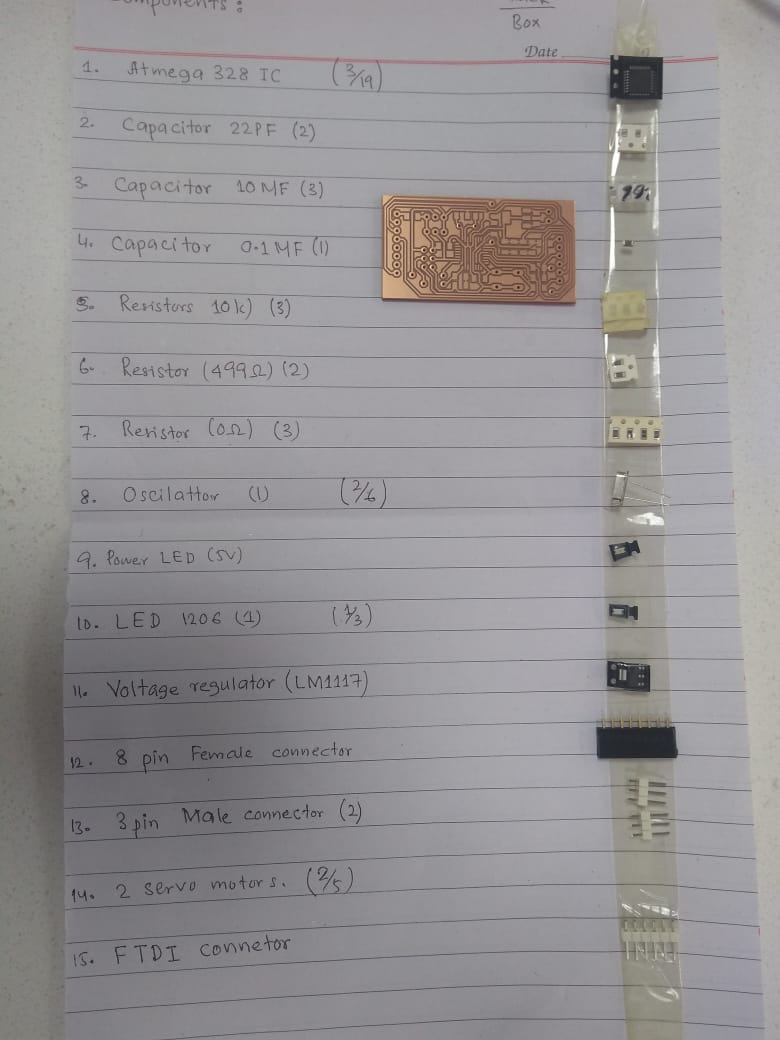 omponents :
Box
Date
1. Atmega 328 IC (3/19)
2. Capacitor 22PF (2)
3. Capacitor 10 MF (3)
4. Capacitor 0.1 MF (1)
5. Resistors 10k) (3)
6. Resistor (499Ω) (2)
7. Resistor (0Ω) (3)
8. Oscilattor (1) (2/6)
9. Power LED (5V)
10. LED 1206 (1) (1/3)
11. Voltage regulator (LM1117)
12. 8 pin Female connector
13. 3 pin Male connector (2)
14. 2 servo motors. (2/5)
15. FTDI connetor